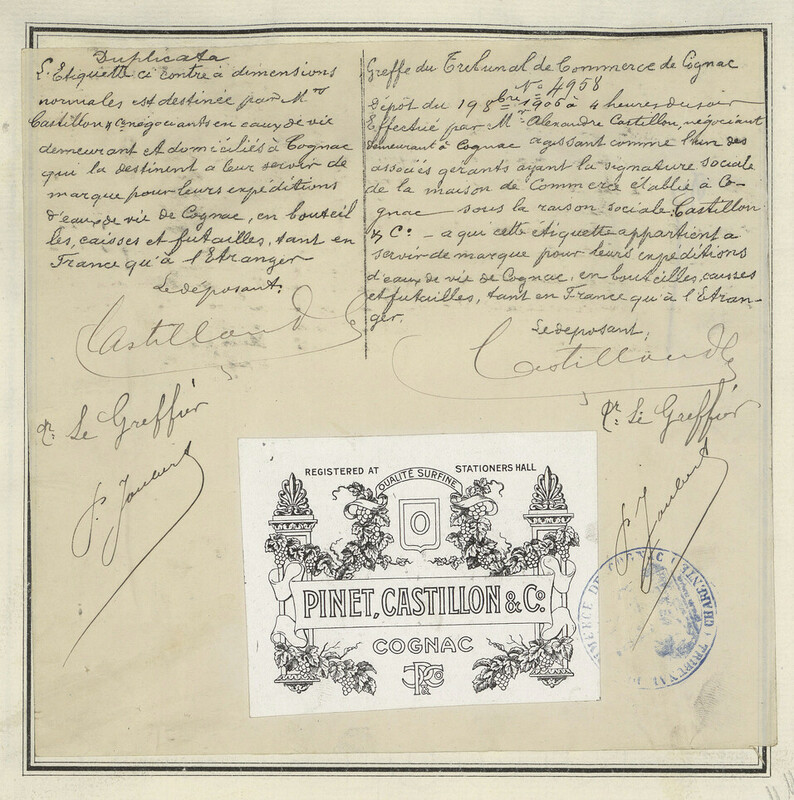 Duplicata
L'Etiquette ci contre à dimensions
normales est destinée par Mrs
Castillon & Cº négociants en eaux de vie
demeurant et domiciliés à Cognac
qui la destinent à leur servir de
marque pour leurs expéditions
d'eaux de vie de Cognac, en bouteil
les, caisses et futailles, tant en
France qu'à l'Etranger
Le déposant,
Castillon & Co
pr. Le Greffier
Greffe du Tribunal de Commerce de Cognac
Nº 4958
Dépôt du 19 8bre 1906 à 4 heures du soir
Effectué par Mr Alexandre Castillon, négociant
demeurant à Cognac agissant comme l'un des
associés gérants ayant la signature sociale
de la maison de Commerce établie à Co-
gnac sous la raison sociale Castillon
& Cº - à qui cette étiquette appartient à
servir de marque pour leurs expéditions
d'eaux de vie de Cognac, en bouteilles, caisses
et futailles, tant en France qu'à l'Etran-
ger.
Le déposant,
Castillon & Co
pr. Le Greffier
REGISTERED AT STATIONERS HALL
QUALITÉ SURFINE
O
PINET, CASTILLON & Cº.
COGNAC
TRIBUNAL DE COMMERCE DE COGNAC (CHARENTE)